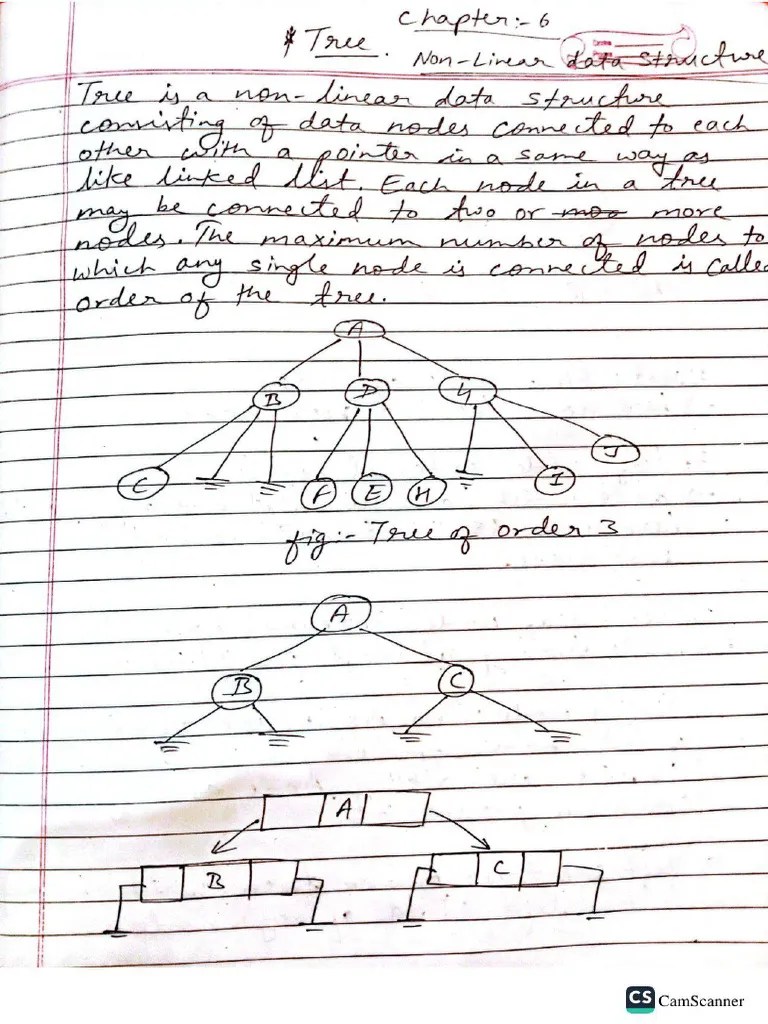 Chapter:- 6
* Tree.
Non-Linear data structure
Tree is a non-linear data structure
consisting of data nodes connected to each
other with a pointer in a same way as
like linked list. Each node in a tree
may be connected to two or moo more
nodes. The maximum number of nodes to
which any single node is connected is called
order of the tree.
A
B D G
J
C F E H I
fig:- Tree of order 3
A
B C
A
B C
CS CamScanner